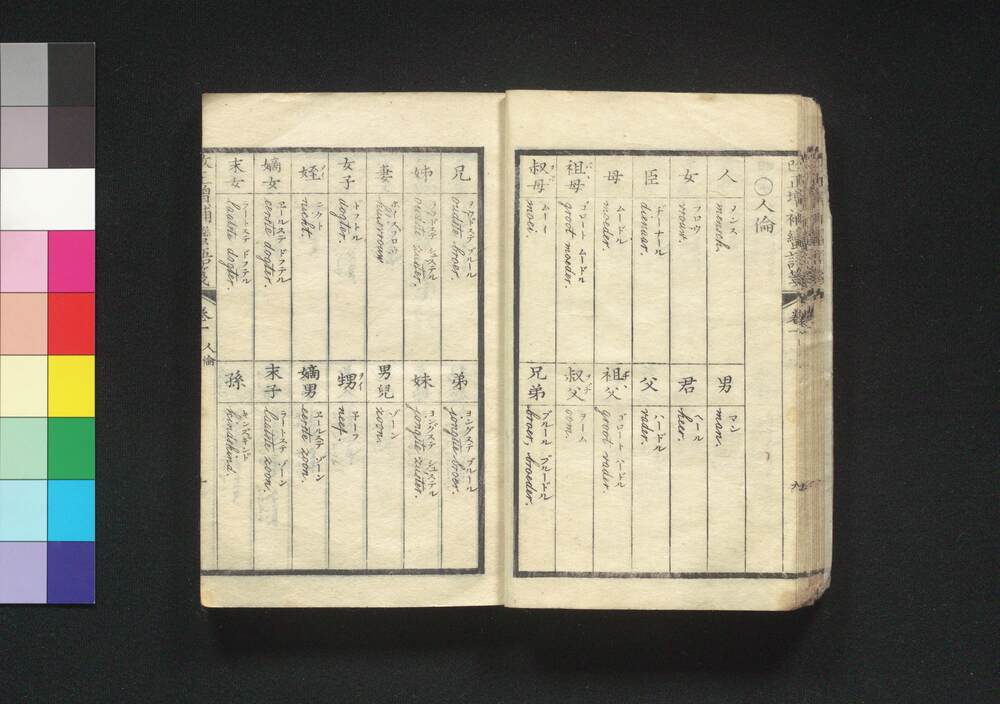 ○人倫
人 メンス mensch.
男 マン man.
女 フロウ vrouw.
君 ヘール heer.
臣 ヂーナール dienaar.
父 ハードル vader.
母 ムードル moeder.
祖父 グロート ハードル groot vader.
祖母 グロート ムードル groot moeder.
叔父 ヲーム oom.
叔母 ムーイ moei.
兄弟 ブルール ブルードル broer, broeder.
兄 ブルール oudste broer.
弟 ヨングステ ブルール jongste broer.
姉 oudste zuster.
妹 ヨングステ jongste zuster.
妻 huisvrouw.
男兒 ゾーン zoon.
女子 ドフテル dogter.
甥 ヲイ ネーフ neef.
姪 nicht.
嫡男 エールステ ゾーン eerste zoon.
嫡女 エールステ ドフテル eerste dogter.
末子 ゾーン laatste zoon.
末女 ドフテル laatste dogter.
孫 kindskind.
卷一 人倫